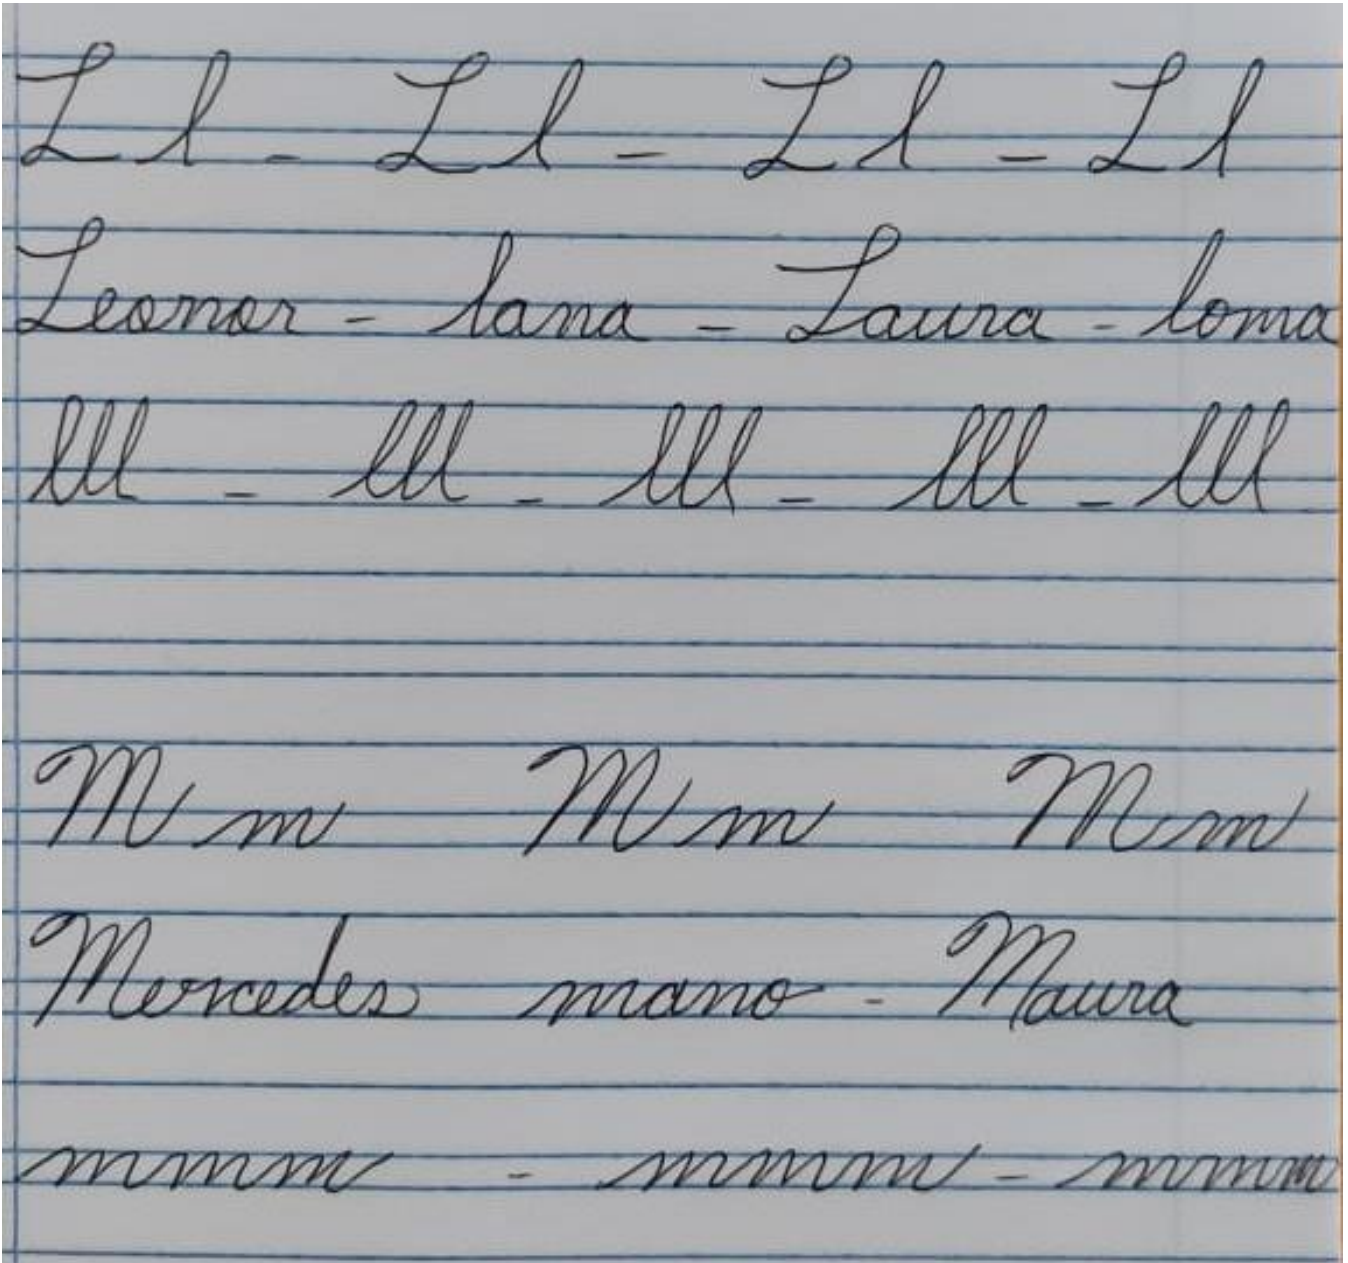 L l - L l - L l - L l
Leonor - lana - Laura - loma
lll - lll - lll - lll - lll
M m M m M m
Mercedes mano - Maura
mmm - mmm - mmm